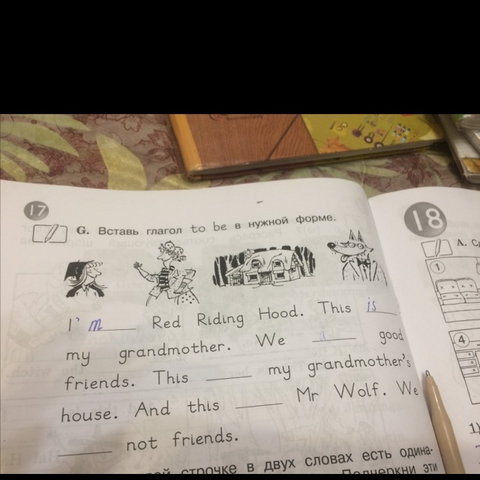 17
18
G. Вставь глагол to be в нужной форме.
A.
1
I'm Red Riding Hood. This is
my grandmother. We a good
4
friends. This ____ my grandmother's
house. And this ____ Mr Wolf. We
1)
____ not friends.
строчке в двух словах есть одина-
Подчеркни эти